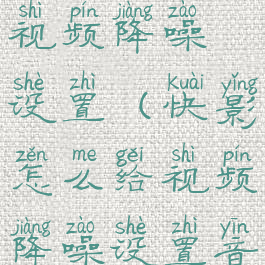 shì pín jiàng zào
视频降噪
shè zhì kuài yǐng
设置（快影
zěn me gěi shì pín
怎么给视频
jiàng zào shè zhì yīn
降噪设置音